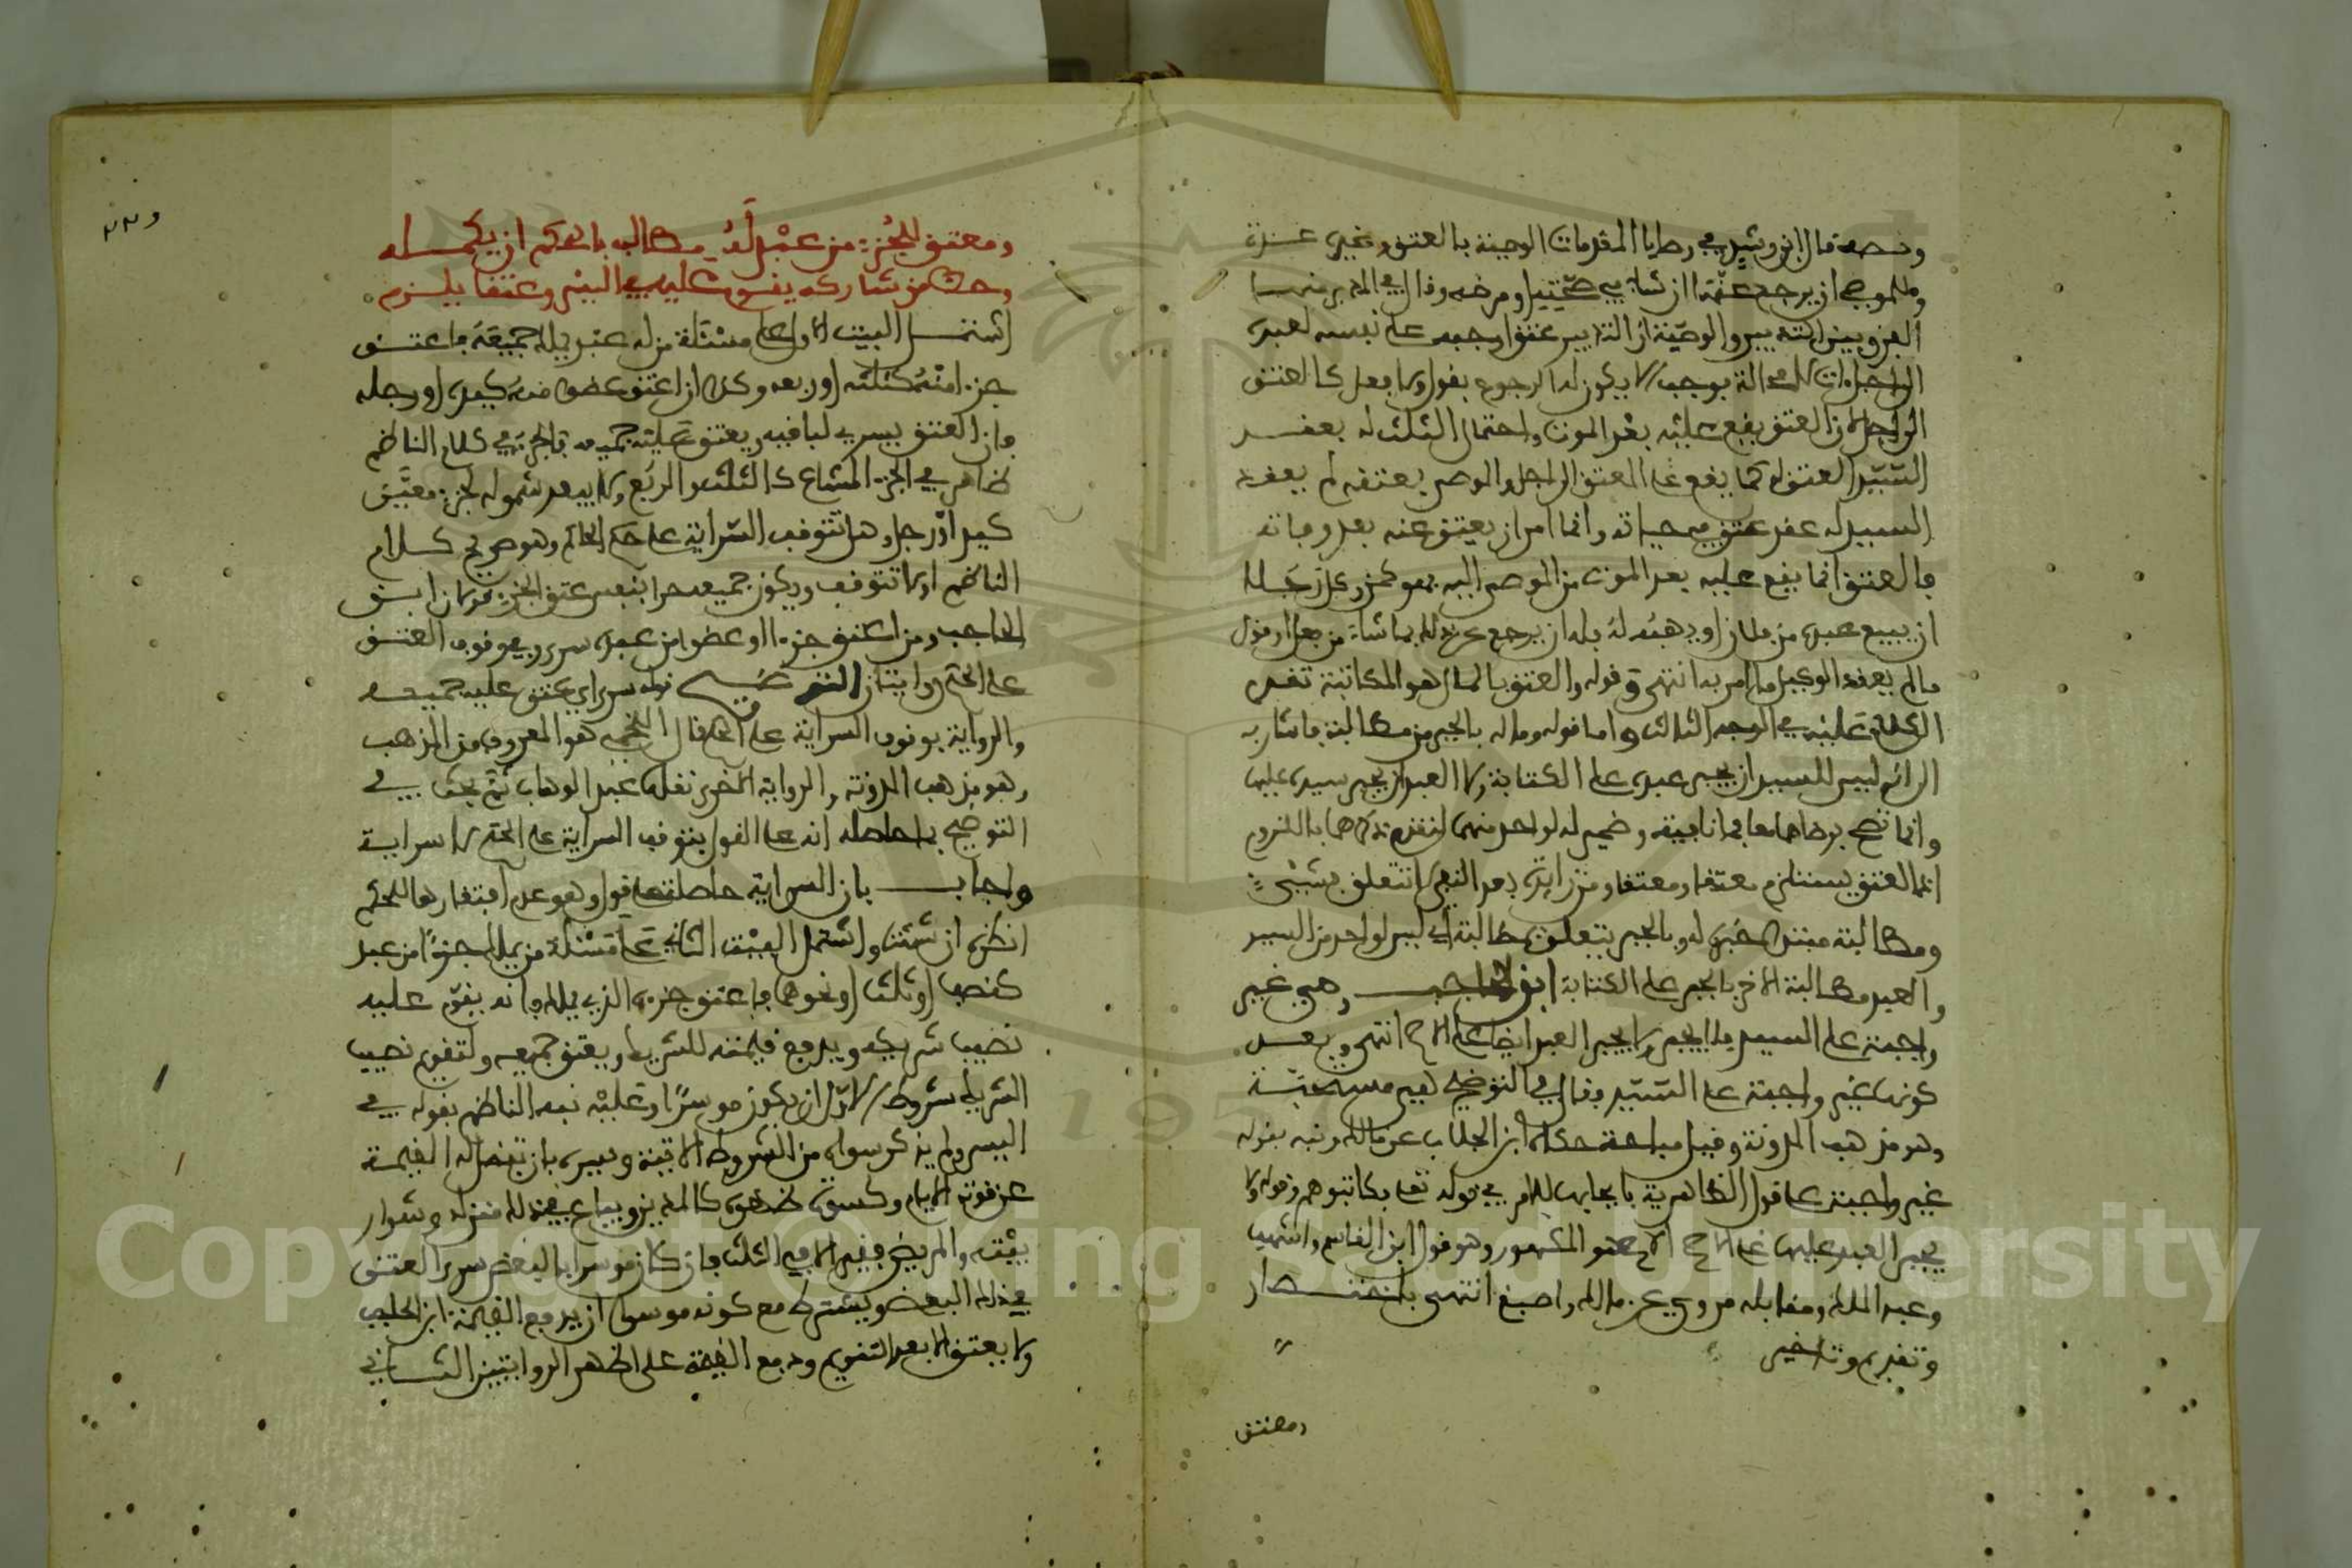 ونصه قال ابن رشد في وصايا المقدمات الوصية بالعتق وغيره عدة
وللموصي أن يرجع عنها إن شاء في صحته أو مرضه وقال في المدبر منها
الفرق بين التدبير والوصية أن التدبير عتق أوجبه على نفسه لعبده
يكون له الرجوع بقول ولا فعل كالعتق
العتق يقع عليه بعد الموت واحتمال الثلث له بعقد
السيد العتق له كما يقع على المعتق إلى أجل والموصى بعتقه لم يعقد
السيد له عقد عتق في حياته وإنما أمر أن يعتق عنه بعد وفاته
فالعتق إنما يقع عليه بعد الموت من الموصى إليه فهو كمن وكل رجلا
أن يبيع عبده من فلان أو يهبه له فله أن يرجع عن ذلك بما شاء من فعل أو قول
ما لم يعقد الوكيل ما أمر به انتهى وقوله والعتق بالمال هو المكاتبة تقدم
الكلام عليه في الوجه الثالث وأما قوله وما له بالجبر من مطالبة فأشار به
ليس للسيد أن يجبر عبده على الكتابة ولا العبد أن يجبر سيده عليها
وإنما تصح برضاهما معا وضمير له لواحد منهما لتقدم ذكرهما باللزوم
إنما العتق يستلزم معتقا ومعتقا ومن زايدة بعد النفي لا تتعلق بشيء
ومطالبة مبتدأ خبره له وبالجبر يتعلق بمطالبة أي ليس لواحد من السيد
والعبد مطالبة الآخر بالجبر على الكتابة ابن الحاجب وهي غير
واجبة على السيد فلا يجبر ولا يجبر العبد أيضا على الأصح انتهى وبعد
كونها غير واجبة على السيد فقال في التوضيح هي مستحبة
وهو مذهب المدونة وقيل مباحة حكاه ابن الجلاب عن مالك ونبه بقوله
غير واجبة على قول الظاهرية بإيجابها للأمر في قوله تعالى فكاتبوهم وقوله ولا
يجبر العبد عليها على الأصح الأصح هو المشهور وهو قول ابن القاسم وأشهب
وعبد الملك ومقابله مروي عن مالك وأصبغ انتهى باختصار
وتقديم وتأخير
ومعتق
ومعتق للجزء من عبد له مطالب بالحكم أن يكمله
وحظ من شاركه يقوم عليه في اليسر وعتقا يلزم
اشتمل البيت الأول على مسئلة من له عبد يملك جميعه فأعتق
جزءا منه كثلثه أو ربعه وكذا إن أعتق عضوا منه كيده أو رجله
فإن العتق يسري لباقيه ويعتق عليه جميعه فالجزء في كلام الناظم
ظاهر في الجزء المشاع كالثلث والربع ولا يبعد شموله لجزء معين
كيد أو رجل وهل تتوقف السراية على حكم الحاكم وهو صريح كلام
الناظم أو لا تتوقف ويكون جميعه حرا بنفس عتق الجزء قولان ابن
الحاجب ومن أعتق جزءا أو عضوا من عبده سرى وفي وقوف العتق
على الحكم روايتان التوضيح قوله سرى أي عتق عليه جميعه
والرواية بوقوف السراية على الحكم قال اللخمي هو المعروف من المذهب
وهو مذهب المدونة والرواية الأخرى نقلها عبد الوهاب ثم بحث في
التوضيح بما حاصله أنه على القول بتوقف السراية على الحكم لا سراية
وأجاب بأن السراية حاصلة على قول وهو عدم افتقارها للحكم
انظره إن شئت واشتمل البيت الثاني على مسئلة من يملك جزءا من عبد
كنصف أو ثلث أو نحوهما فأعتق جزءه الذي يملك فإنه يقوم عليه
نصيب شريكه ويدفع قيمته للشريك ويعتق جميعه ولتقويم نصيب
الشريك شروط الأول أن يكون موسرا وعليه نبه الناظم بقوله في
اليسر ولم يذكر سواه من الشروط الآتية ويسره بأن تفضل له القيمة
عن قوته الأيام وكسوة ظهره كالمديان ويباع في ذلك منزله وشوار
بيته والمريض فقير إلا في الثلث فإن كان موسرا بالبعض سرى العتق
في ذلك البعض ويشترط مع كونه موسرا أن يدفع القيمة ابن الحاجب
ولا يعتق إلا بعد التقويم ودفع القيمة على أظهر الروايتين الثاني